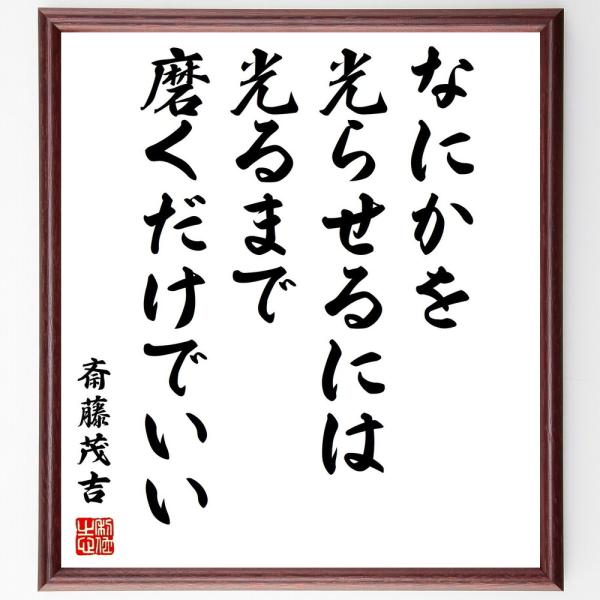 なにかを
光らせるには
光るまで
磨くだけでいい
斎藤茂吉